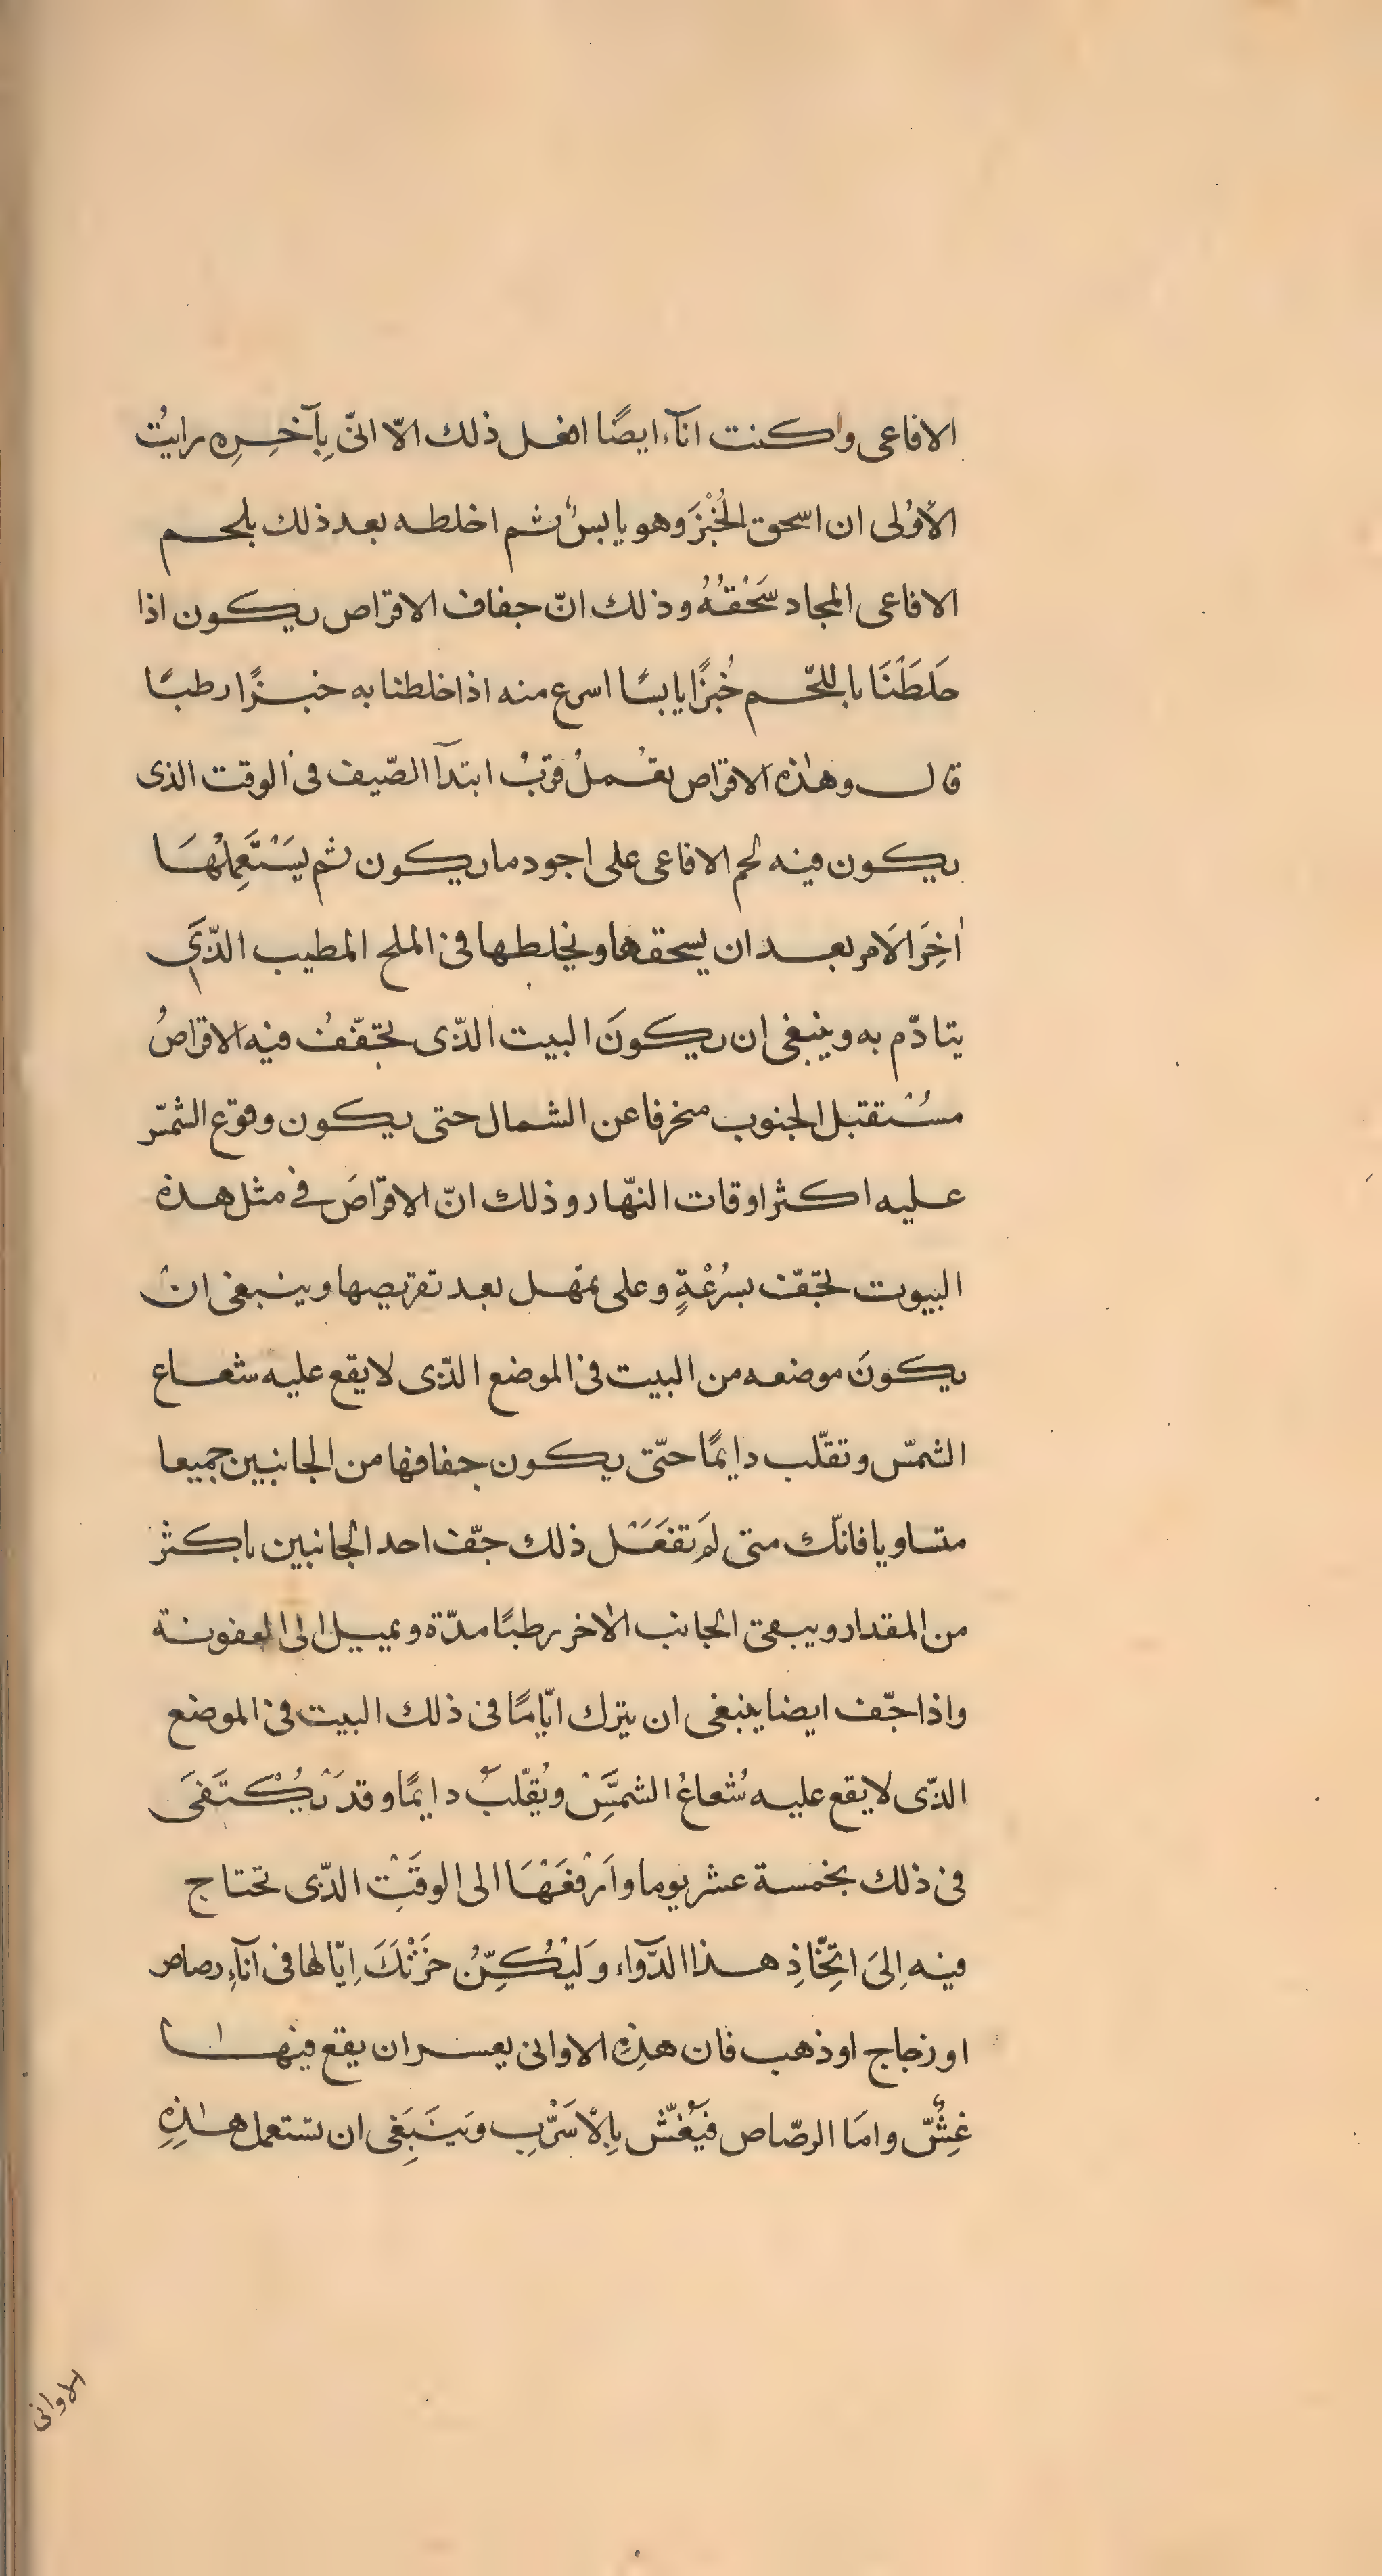 الافاعى واكنت انآء ايضًا افعل ذلك الّا انّى بِآخِرِه رايتُ
الأوْلى ان اسحق الخُبْزَ وهو يابسٌ ثم اخلطه بعد ذلك بلحم
الافاعى المجاد سَحْقُهُ وذلك انّ جفاف الاقراص يكون اذا
خلَطْنَا باللّحم خُبزًا يابسًا اسرع منه اذا خلطنا به خبزًا رطبًا
قال وهٰذه الاقراص تعْملُ قربُ ابتدآ الصّيف فى الوقت الذى
يكون فيه لحم الافاعى على اجود ما يكون ثم يَسْتَعمِلُهَا
اٰخِرَ الَامر بعد ان يسحقها ويخلطها فى الملح المطيب الذّى
يتادّم به وينبغى ان يكونَ البيت الذّى تجفّفُ فيه الاقراصُ
مسُتقبل الجنوب منحرفا عن الشمال حتى يكون وقوع الشمّس
عليه اكثر اوقات النهّار وذلك انّ الاقراصَ فى مثل هذه
البيوت تجفّ بسُرْعَةٍ وعلى تمهّل بعد تقريصها وينبغى انْ
يكونَ موضعه من البيت فى الموضع الذّى لا يقع عليه شعاع
الشمّس وتقلّب دايمًا حتّى يكون جفافها من الجانبين جميعا
متساويا فانّك متى لَم تفعَل ذلك جفّ احد الجانبين باكثر
من المقدار ويبقى الجانب الاٰخر رطبًا مدّة ويميل الى العفونة
واذا جفّف ايضا ينبغى ان يترك ايّامًا فى ذلك البيت فى الموضع
الذّى لا يقع عليه شُعاعُ الشمَّسِ ويُقلّبُ دايمًا وقدَ يُكْتَفىَ
فى ذلك بخمسة عشر يوما وَارْفَعَهَا الى الوقَتِ الذّى تحتاج
فيه اِلىَ اتِّخّاذِ هذا الدّوآء وَليْكُنّ خَزْنَكَ اِيّا لها فى آنآءِ رصاص
او زجاج او ذهب فان هذِهِ الاوانى يعسر ان يقع فيها
غِشٌّ وامَا الرصّاص فَيُغشّ بِالأسَرْبِ وَينَبَغِى ان تستعمل هٰذِهِ
الاوانى